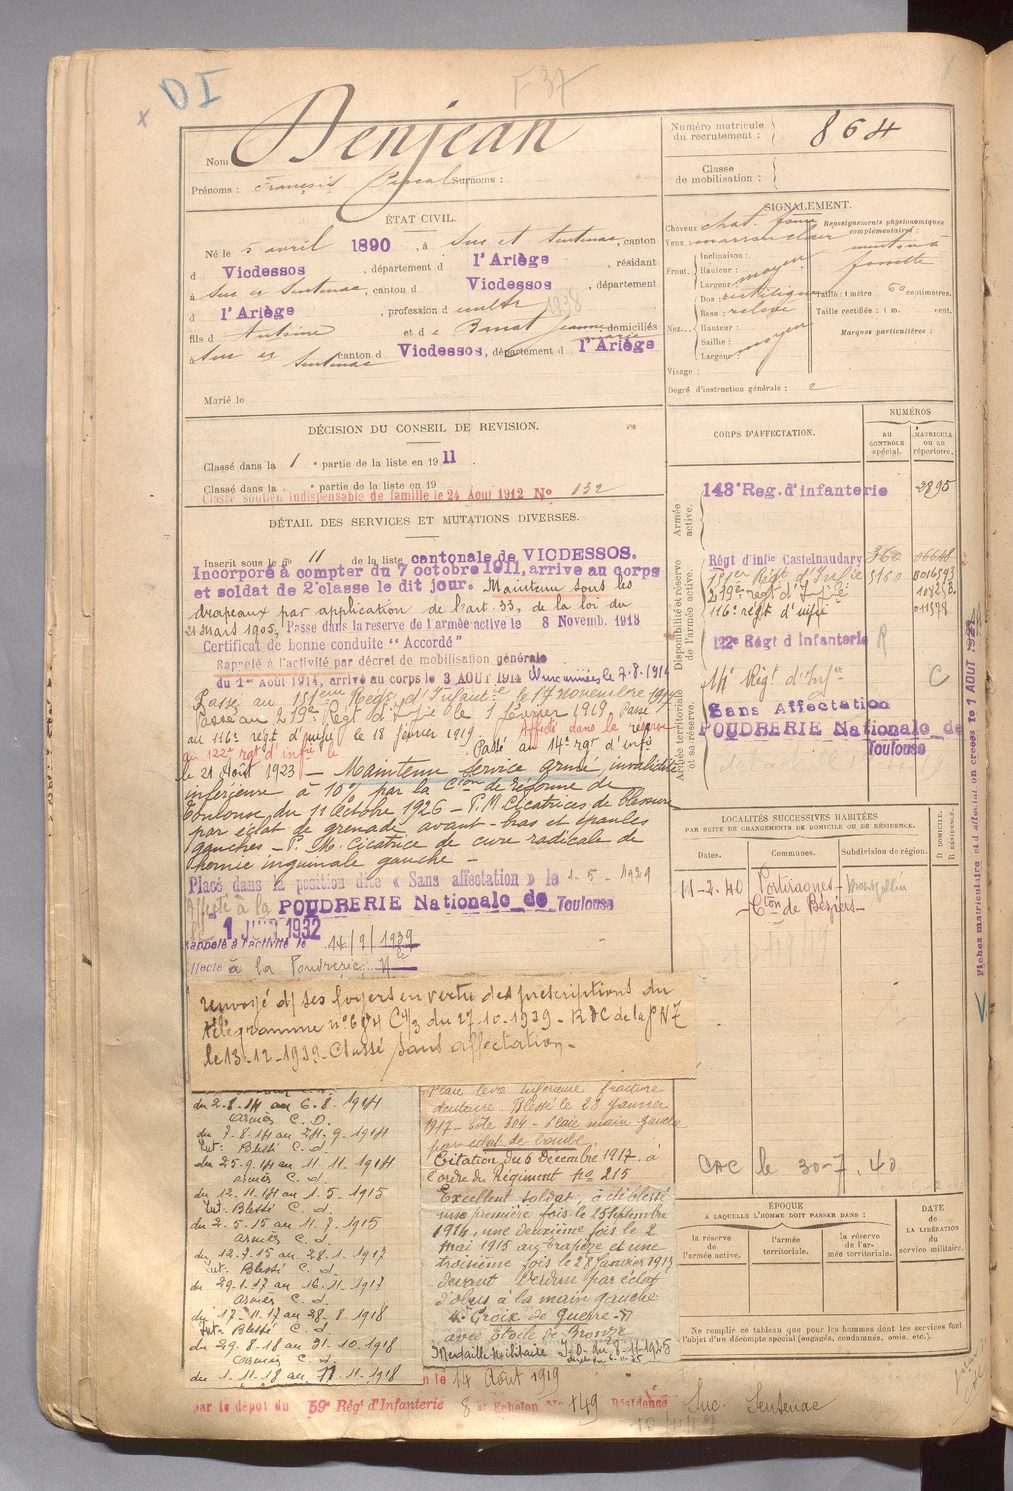 DI
F 37
Nom Denjean
Prénoms : François Pascal Surnoms :
Numéro matricule du recrutement : 864
Classe de mobilisation :
ÉTAT CIVIL.
Né le 5 avril 1890, à Suc et Sentenac, canton
d Vicdessos, département d l'Ariège, résidant
à Suc et Sentenac, canton d Vicdessos, département
d l'Ariège, profession d cultr
1938
fils d Antoine et d e Bonat Jeanne marie domiciliés
à Suc et Sentenac canton d Vicdessos, département d l'Ariège
Marié le
SIGNALEMENT.
Cheveux chat. foncé
Yeux : marron clair
Renseignements physionomiques complémentaires :
menton à fossette
Front. Inclinaison :
Hauteur : moyen
Largeur :
Nez. Dos : rectiligne
Base : relevé
Hauteur :
Saillie : moyen
Largeur :
Taille : 1 mètre 60 centimètres.
Taille rectifiée : 1 m. cent.
Marques particulières :
Visage :
Degré d'instruction générale : 2
DÉCISION DU CONSEIL DE REVISION.
Classé dans la 1 e partie de la liste en 1911.
Classé dans la e partie de la liste en 19
Classé soutien indispensable de famille le 24 Aout 1912 No 132
DÉTAIL DES SERVICES ET MUTATIONS DIVERSES.
Inscrit sous le no 11 de la liste cantonale de VICDESSOS.
Incorporé à compter du 7 octobre 1911, arrivé au corps
et soldat de 2e classe le dit jour. Maintenu sous les
drapeaux par application de l'art. 33, de la loi du
21 Mars 1905, Passé dans la réserve de l'armée active le 8 Novemb. 1913
Certificat de bonne conduite "Accordé"
Rappelé à l'activité par décret de mobilisation générale
du 1er Août 1914, arrivé au corps le 3 AOUT 1914 Aux armées le 7.8.1914
Passé au 151eme Regt d'Infantie le 17 novembre 1917
Passé au 219e Régt d'Infie le 1 février 1919. Passé
au 116e régt d'infie le 18 février 1919. Affecté dans la réserve
au 122e rgt d'infie le Passé au 14e rgt d'infie
le 21 Août 1923 — Maintenu service armé, invalidité
inférieure à 10% par la Cion de réforme de
Toulouse du 11 Octobre 1926 — P. M. Cicatrices de blessure
par éclat de grenade avant-bras et épaules
gauches — P. M. Cicatrice de cure radicale de
hernie inguinale gauche —
Placé dans la position dite « Sans affectation » le 1-5-1929
Affecté à la POUDRERIE Nationale de Toulouse
le 1 JUIN 1932
Rappelé à l'activité le 14/9/1939
Affecté à la Poudrerie Nle
renvoyé ds ses foyers en vertu des prescriptions du
télégramme n° 684 C4/3 du 27-10-1939 - RDC de la PNT
le 13-12-1939. Classé sans affectation.
du 2-8-14 au 6-8-1914
Armés C. D.
du 7-8-14 au 24-9-1914
Int: Blessé C. d.
du 25-9-14 au 11-11-1914
armés C. d.
du 12-11-14 au 1-5-1915
Int. Blessé C. d.
du 2-5-15 au 11-7-1915
Armés C. d.
du 12-7-15 au 28-1-1917
Int: Blessé C. d.
du 29-1-17 au 16-11-1917
Armés C. d.
du 17-11-17 au 28-8-1918
Int. Blessé C. d.
du 29-8-18 au 31-10-1918
Armés C. d.
du 1-11-18 au 11-11-1918
Plaie lèvre inférieure fracture
dentaire. Blessé le 28 Janvier
1917 - Côte 304 - Plaie main gauche
par éclat de bombe
Citation du 6 Décembre 1917 à
l'ordre du Régiment No 215
Excellent soldat, a été blessé
une première fois le 25 Septembre
1914, une deuxième fois le 2
Mai 1915 au trapèze et une
troisième fois le 28 Janvier 1917
devant Verdun par éclat
d'obus à la main gauche
Croix de Guerre
avec Etoile de Bronze
Médaille Militaire J.O. du 8-11-1925
le 14 Août 1919
par le dépôt du 59e Régt d'Infanterie 8 e Echelon No 149 Résidence Suc Sentenac
CORPS D'AFFECTATION.
NUMÉROS
au CONTRÔLE spécial.
MATRICULE ou au répertoire.
Armée active.
Disponibilité et réserve de l'armée active.
Armée territoriale et sa réserve.
143e Reg. d'infanterie 2795
Régt d'infie Castelnaudary 360
151er Régt d'Infie 5160
219e régt d'Infie
116e régt d'infie 011578
122e Régt d'Infanterie R
14e Régt d'Infie C
Sans Affectation
POUDRERIE Nationale de
Toulouse
LOCALITÉS SUCCESSIVES HABITÉES
PAR SUITE DE CHANGEMENTS DE DOMICILE OU DE RÉSIDENCE.
Dates. Communes. Subdivision de région. D DOMICILE. R RÉSIDENCE.
11-2-40 Portiragnes Montpellier
Cton de Béziers
CAC le 30-7-40
ÉPOQUE
A LAQUELLE L'HOMME DOIT PASSER DANS :
la réserve de l'armée active.
l'armée territoriale.
la réserve de l'armée territoriale.
DATE de LA LIBÉRATION du service militaire.
Ne remplir ce tableau que pour les hommes dont les services font
l'objet d'un décompte spécial (engagés, condamnés, omis, etc.).